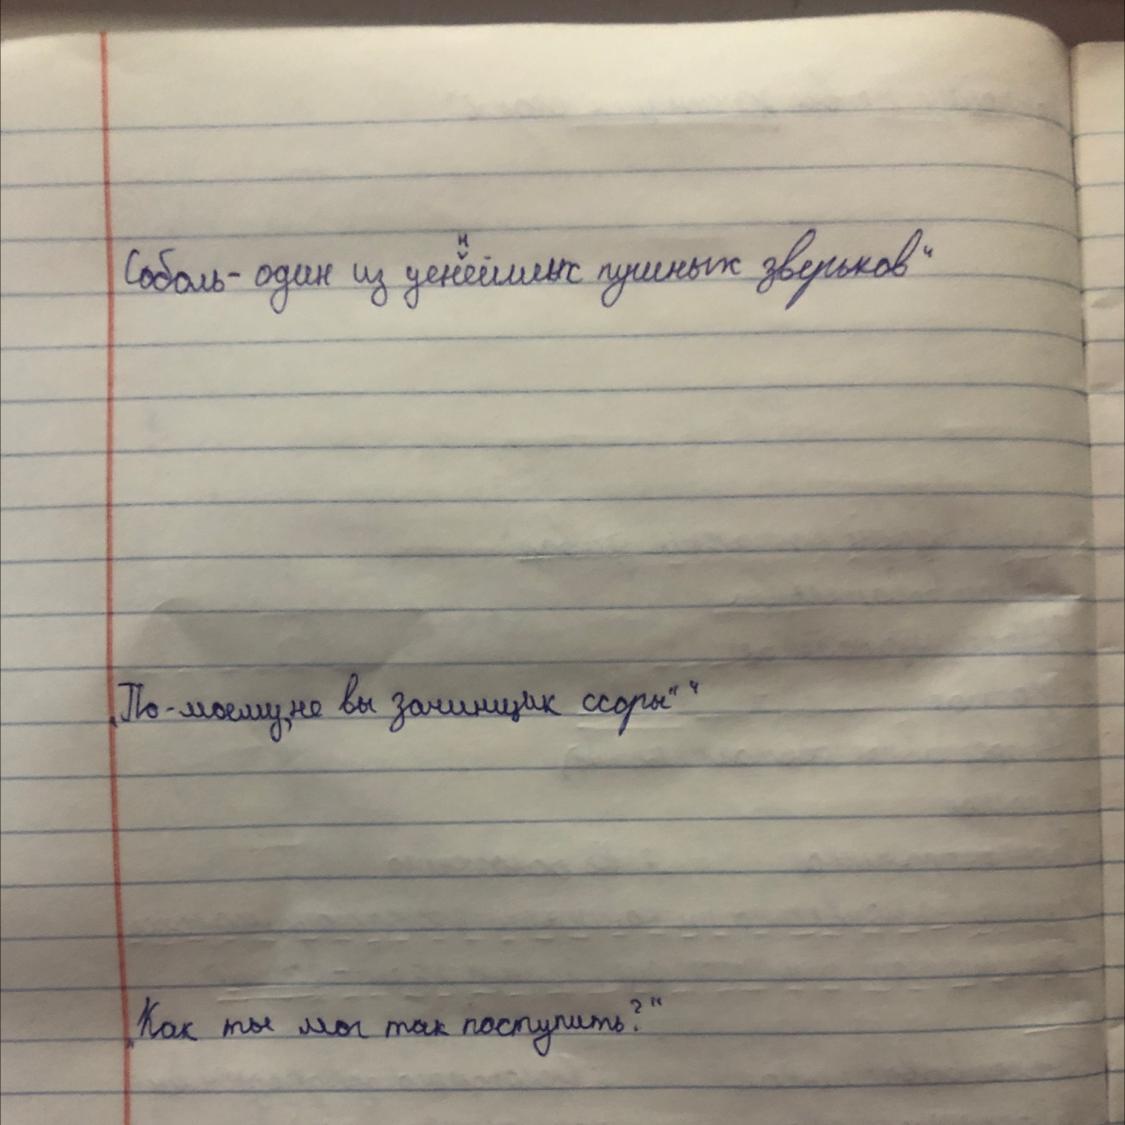 Соболь - один из ценнейших пушных зверьков"
„По-моему, не вы зачинщик ссоры" "
„Как ты мог так поступить?"